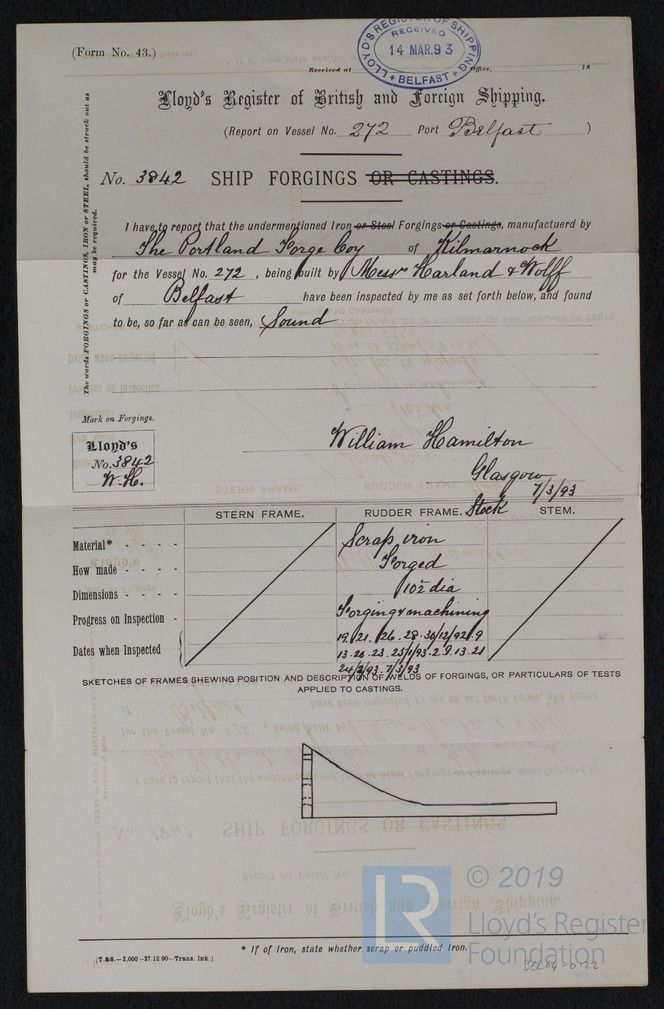 (Form No. 43.)
LLOYD'S REGISTER OF SHIPPING
RECEIVED
14 MAR.93
BELFAST
Received at Office, 18
Lloyd's Register of British and Foreign Shipping.
(Report on Vessel No. 272 Port Belfast )
No. 3842 SHIP FORGINGS OR CASTINGS.
The words FORGINGS or CASTINGS, IRON or STEEL, should be struck out as
may be required.
I have to report that the undermentioned Iron or Steel Forgings or Castings, manufactuerd by
The Portland Forge Coy of Kilmarnock
for the Vessel No. 272 , being built by Messrs Harland & Wolff
of Belfast have been inspected by me as set forth below, and found
to be, so far as can be seen, Sound
Mark on Forgings.
Lloyd's
No. 3842
W.H.
William Hamilton
Glasgow
7/3/93
STERN FRAME. RUDDER FRAME. Stock STEM.
Material* - - - - Scrap iron
How made - - - - Forged
Dimensions - - - - 10½ dia
Progress on Inspection - Forging & machining
Dates when Inspected 19. 21. 26. 28. 30/12/92. 9
13. 20. 23. 25/1/93. 2. 9. 13. 21
24/2/93. 7/3/93
SKETCHES OF FRAMES SHEWING POSITION AND DESCRIPTION OF WELDS OF FORGINGS, OR PARTICULARS OF TESTS
APPLIED TO CASTINGS.
© 2019
LR
Lloyd's Register
Foundation
* If of Iron, state whether scrap or puddled Iron.
[T.&S.—2,000—27.12.90—Trans. Ink.]